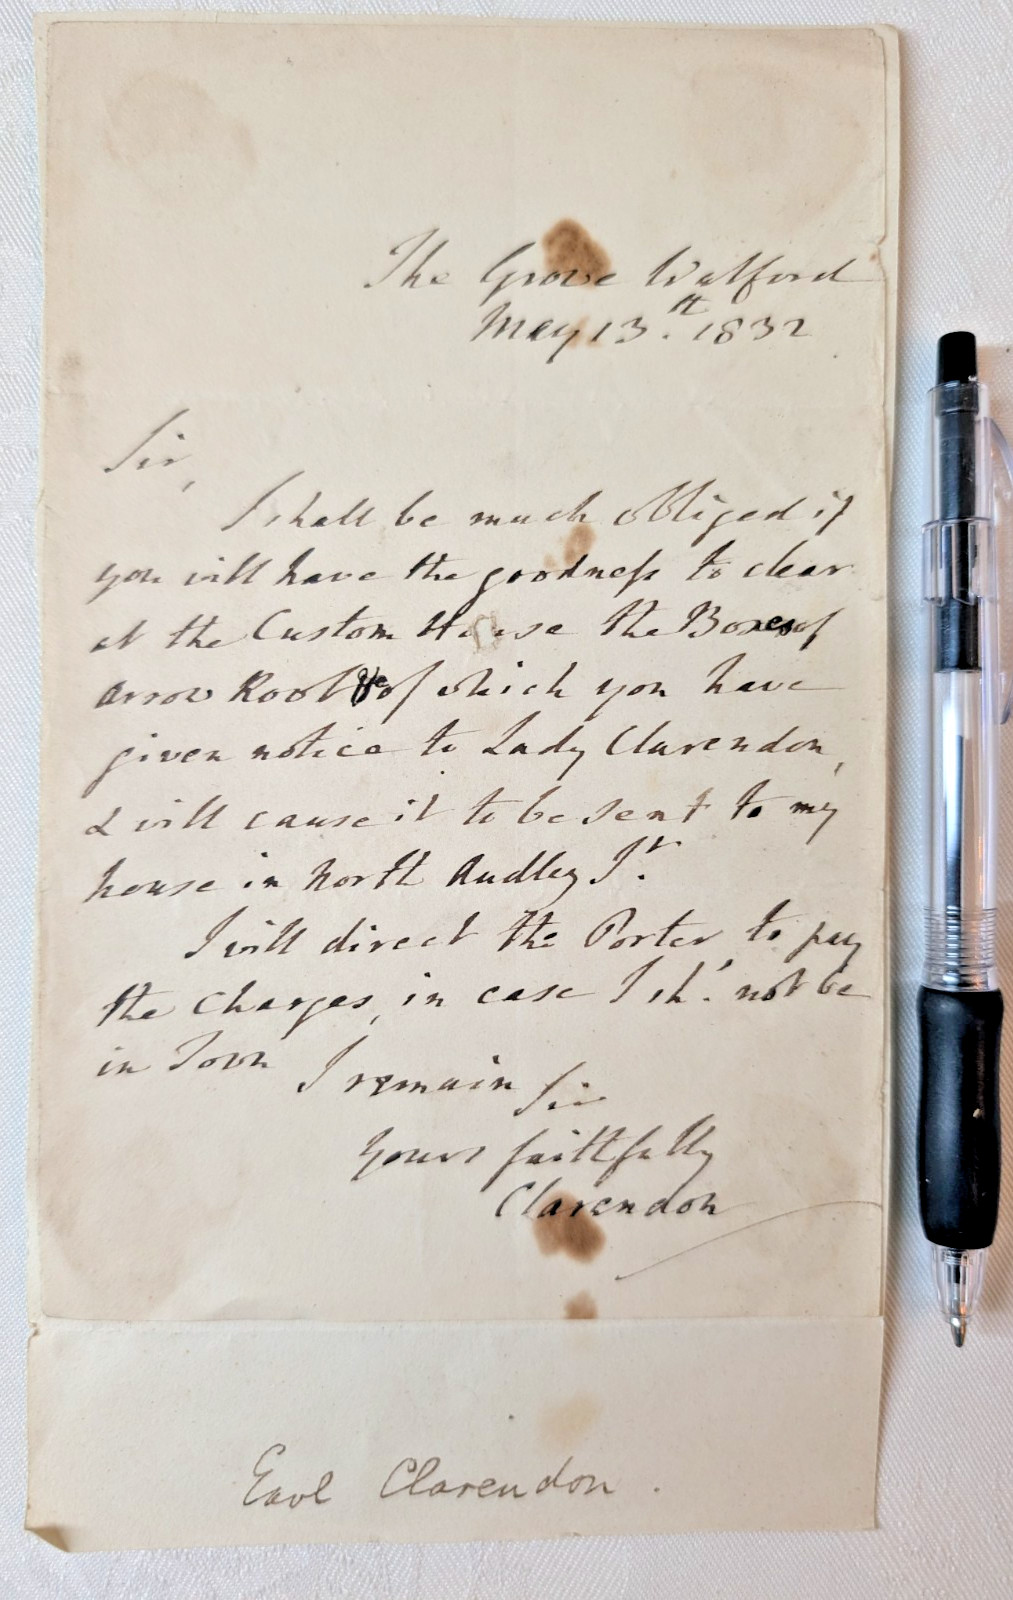 The Grove Watford
May 13.th 1832
Sir,
I shall be much obliged if
you will have the goodness to clear
at the Custom House the Boxes of
Arrow Root &c of which you have
given notice to Lady Clarendon,
& will cause it to be sent to my
house in North Audley St.
I will direct the Porter to pay
the Charges, in case I shd. not be
in Town
I remain Sir
Yours faithfully
Clarendon
Earl Clarendon.